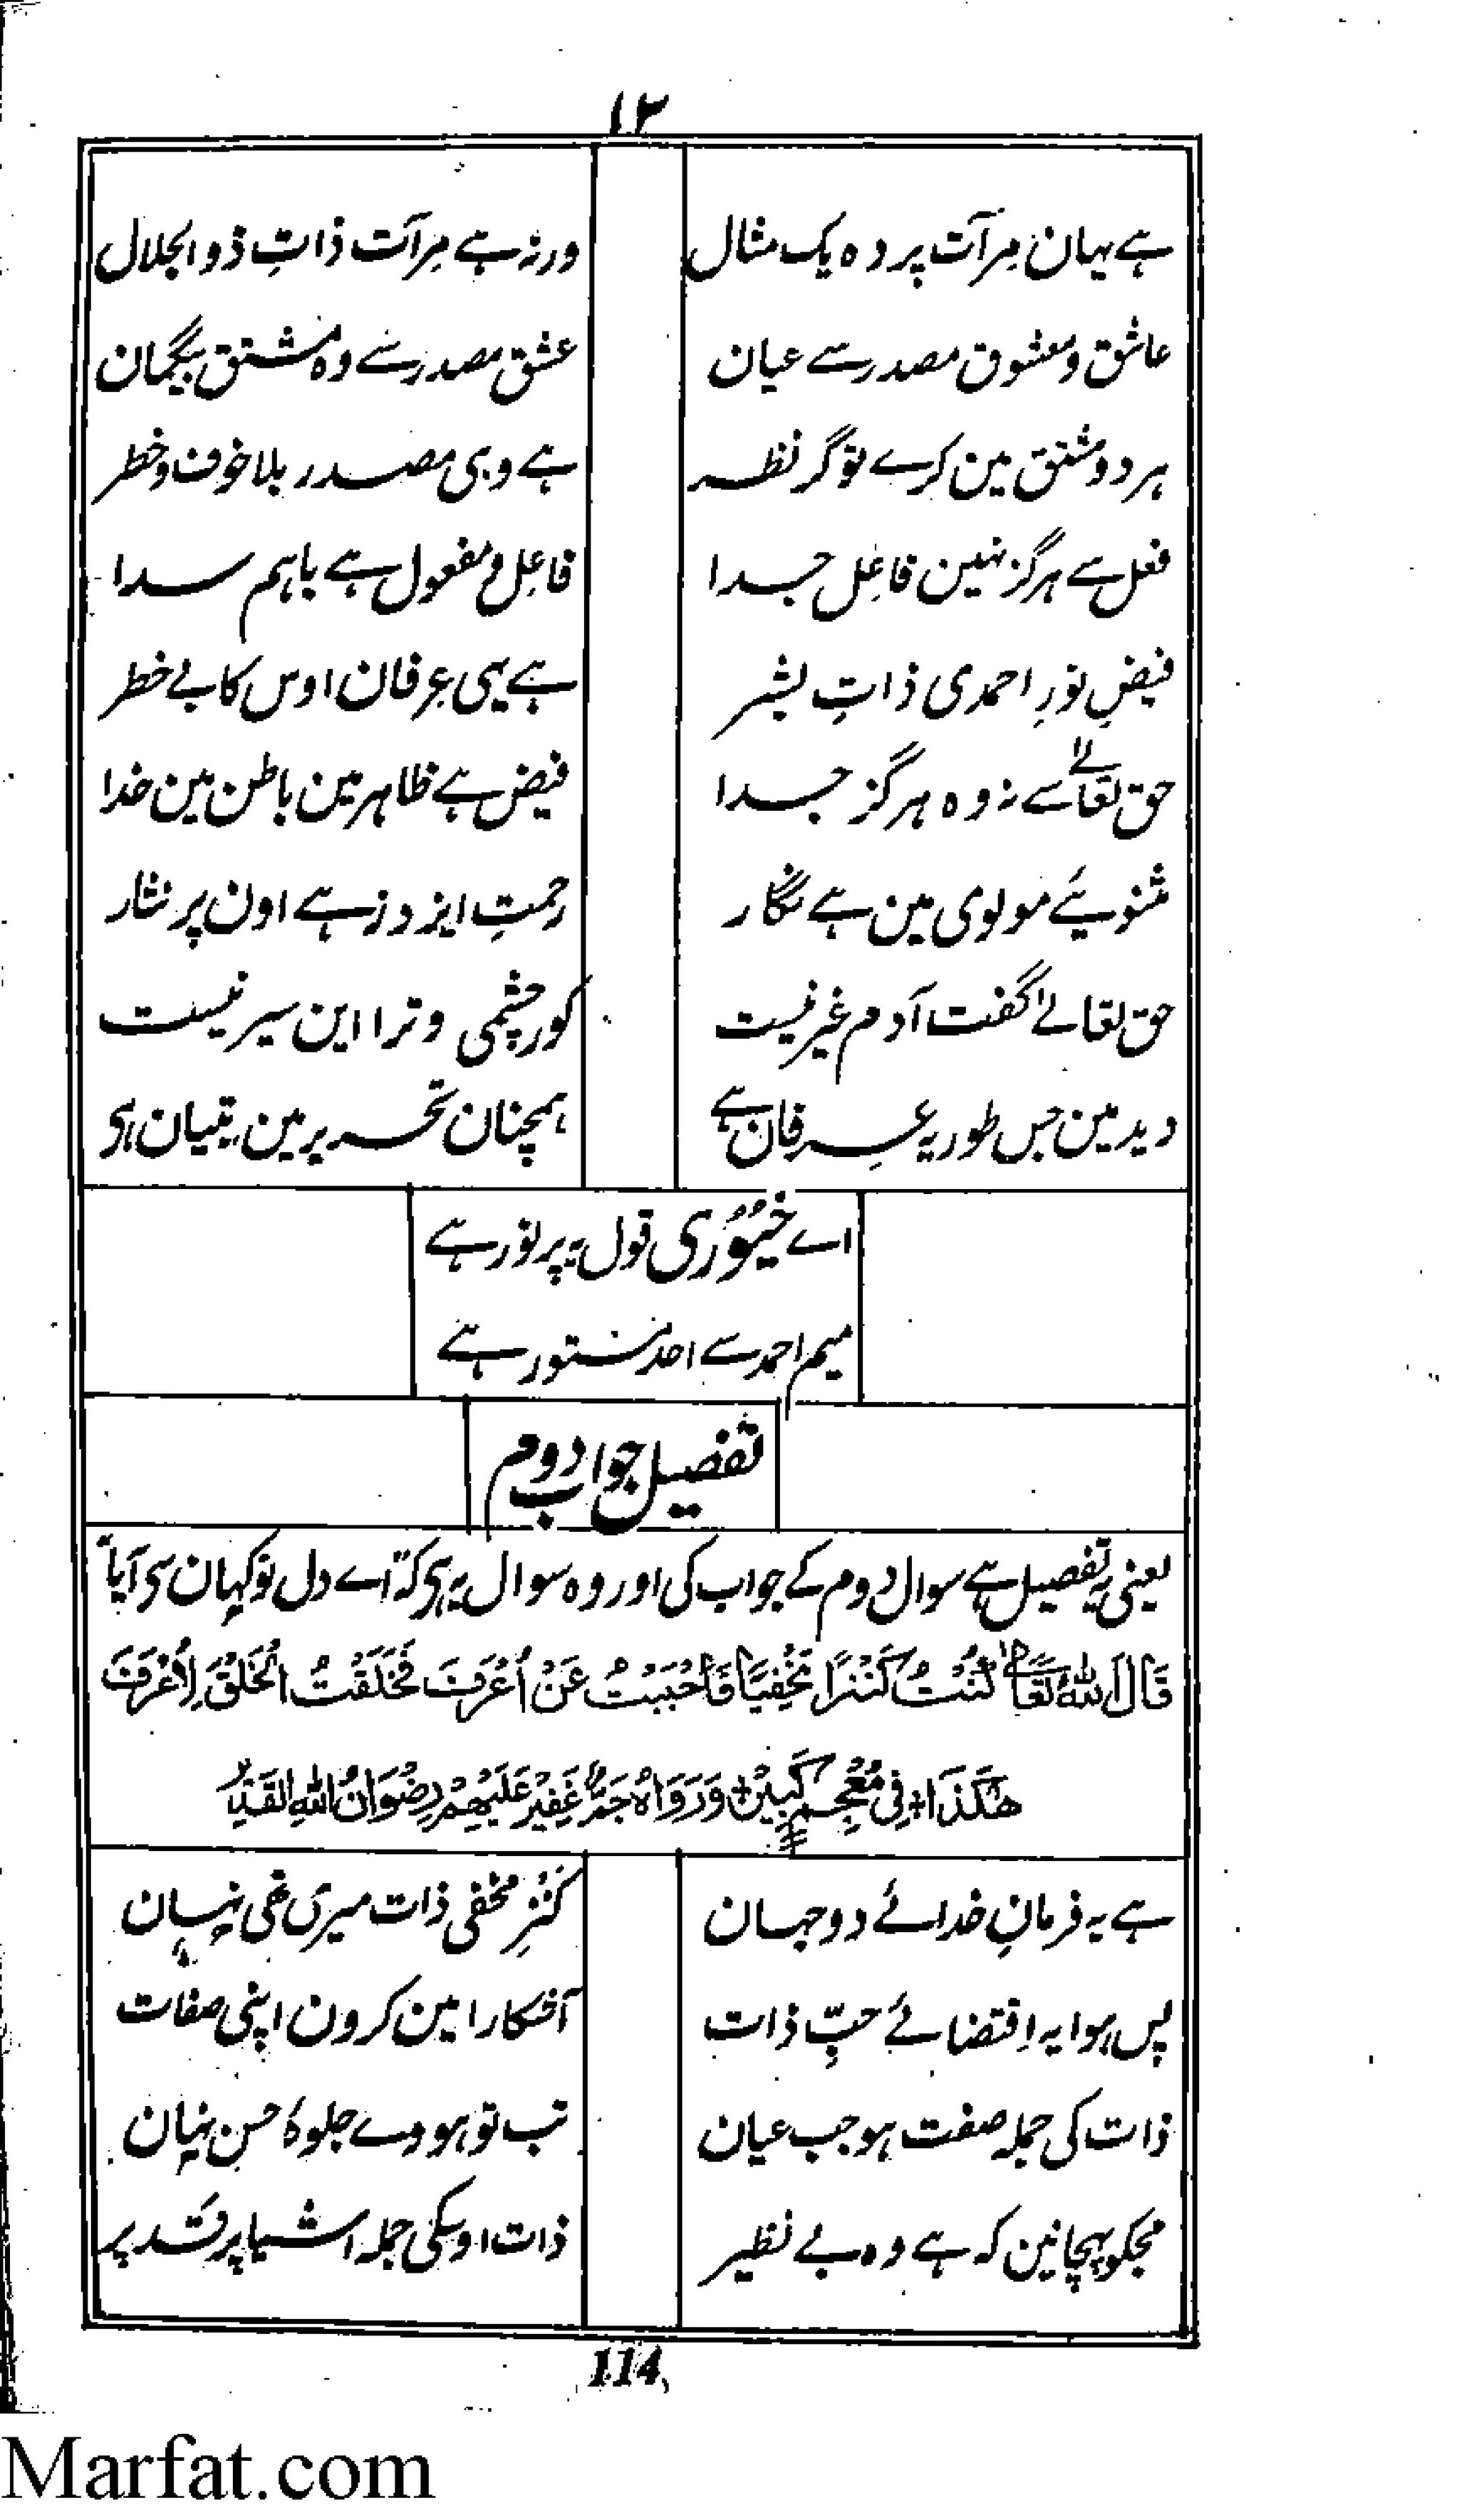 ۱۲
ہے یہان مِرآت پر وہ یک مثال ورنہ ہے مِرآت ذاتِ ذو الجلال
عاشق و معشوق مصدر سے عیان عشق مصدر سے وہ مشتق بیگمان
ہر دو مشتق مین کرے تو گر نظر ہے وہی مصدر بلا خوف و خطر
فعل سے ہرگز نہین فاعِل جدا فاعِل و مفعول ہے باہم سدا
فیضِ نورِ احمدی ذاتِ بشر ہے یہی عِرفان اوس کا بے خطر
حق تعالےٰ سے نہ وہ ہرگز جدا فیض ہے ظاہر مین باطن مین خدا
مثنویئے مولوی مین ہے نگار رحمتِ ایزد ز ہے اون پر نثار
حق تعالےٰ گفت آدم غیر نیست کور چشمی و ترا این سیر نیست
دید مین جس طور یہ عِرفان ہے ہمچنان تحریر مین تیبان ہی
اے خیوری قول یہ پر نور ہے
میم احمد سے احد مستور ہے
تفضیل جواب دوم
یعنی یہ تفصیل ہے سوال دوم کے جواب کی اور وہ سوال یہ ہی کہ آے دل تو کہان سی آیا
قَالَ اللهُ تَعَالٰے كُنْتُ كَنْزًا مَخْفِيًّا فَاَحْبَبْتُ عَنْ اُعْرَفَ فَخَلَقْتُ الْخَلْقَ لِاُعْرَفَ
هٰكَذَا فِي مُعْجِمٍ كَبِيْرٍ وَرَوَاهُ جَمٌّ غَفِيْرٌ عَلَيْهِمْ رِضْوَانُ اللهِ الْقَدِيْرِ
ہے یہ فرمانِ خدائے دو جہان کنزِ مخفی ذات میری تھی نہان
پس ہوا یہ اِقتضائے حبِّ ذات آشکارا مین کرون اپنی صفات
ذات کی جملہ صفت ہو جب عیان تب تو ہووے جلوہ کا حسن نہان
مجکو پہچانین کہ ہے وہ بے نظیر ذات اوسکی جملہ اشیا پر قدیر
114
Marfat.com